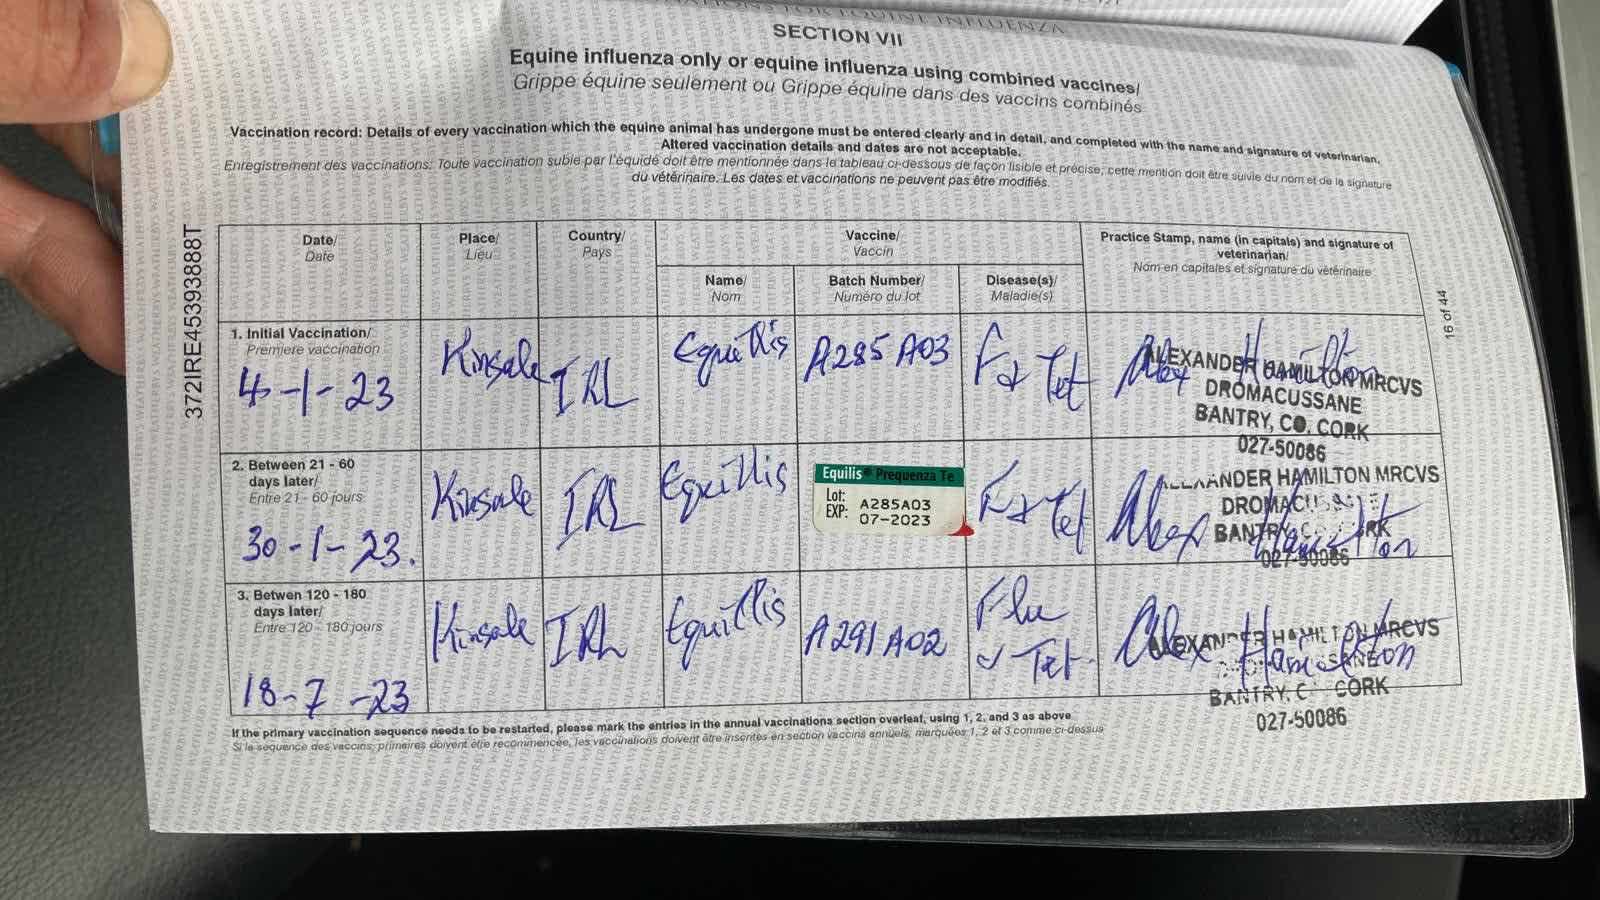 SECTION VII
Equine influenza only or equine influenza using combined vaccines/
Grippe équine seulement ou Grippe équine dans des vaccins combinés
Vaccination record: Details of every vaccination which the equine animal has undergone must be entered clearly and in detail, and completed with the name and signature of veterinarian.
Altered vaccination details and dates are not acceptable.
Enregistrement des vaccinations: Toute vaccination subie par l'équidé doit être mentionnée dans le tableau ci-dessous de façon lisible et précise; cette mention doit être suivie du nom et de la signature
du vétérinaire. Les dates et vaccinations ne peuvent pas être modifiés.
372IRE45393888T
16 of 44
Date/
Date
Place/
Lieu
Country/
Pays
Vaccine/
Vaccin
Name/
Nom
Batch Number/
Numéro du lot
Disease(s)/
Maladie(s)
Practice Stamp, name (in capitals) and signature of
veterinarian/
Nom en capitales et signature du vétérinaire
1. Initial Vaccination/
Première vaccination
4-1-23
Kinsale
IRL
Equillis
A285 A03
F & Tet
Alex Hamilton
ALEXANDER HAMILTON MRCVS
DROMACUSSANE
BANTRY, CO. CORK
027-50086
2. Between 21 - 60
days later/
Entre 21 - 60 jours
30-1-23.
Kinsale
IRL
Equillis
Equilis® Prequenza Te
Lot: A285A03
EXP: 07-2023
F & Tet
Alex Hamilton
ALEXANDER HAMILTON MRCVS
BANTRY, CORK
027-50086
3. Betwen 120 - 180
days later/
Entre 120 - 180 jours
18-7-23
Kinsale
IRL
Equillis
A291 A02
Flu
& Tet.
Alex Hamilton
ALEXANDER HAMILTON MRCVS
BANTRY, C CORK
027-50086
If the primary vaccination sequence needs to be restarted, please mark the entries in the annual vaccinations section overleaf, using 1, 2, and 3 as above
Si le séquence des vaccins, primaires doivent être recommencée, les vaccinations doivent être insérées en section vaccins annuels, marquées 1, 2 et 3 comme ci-dessus